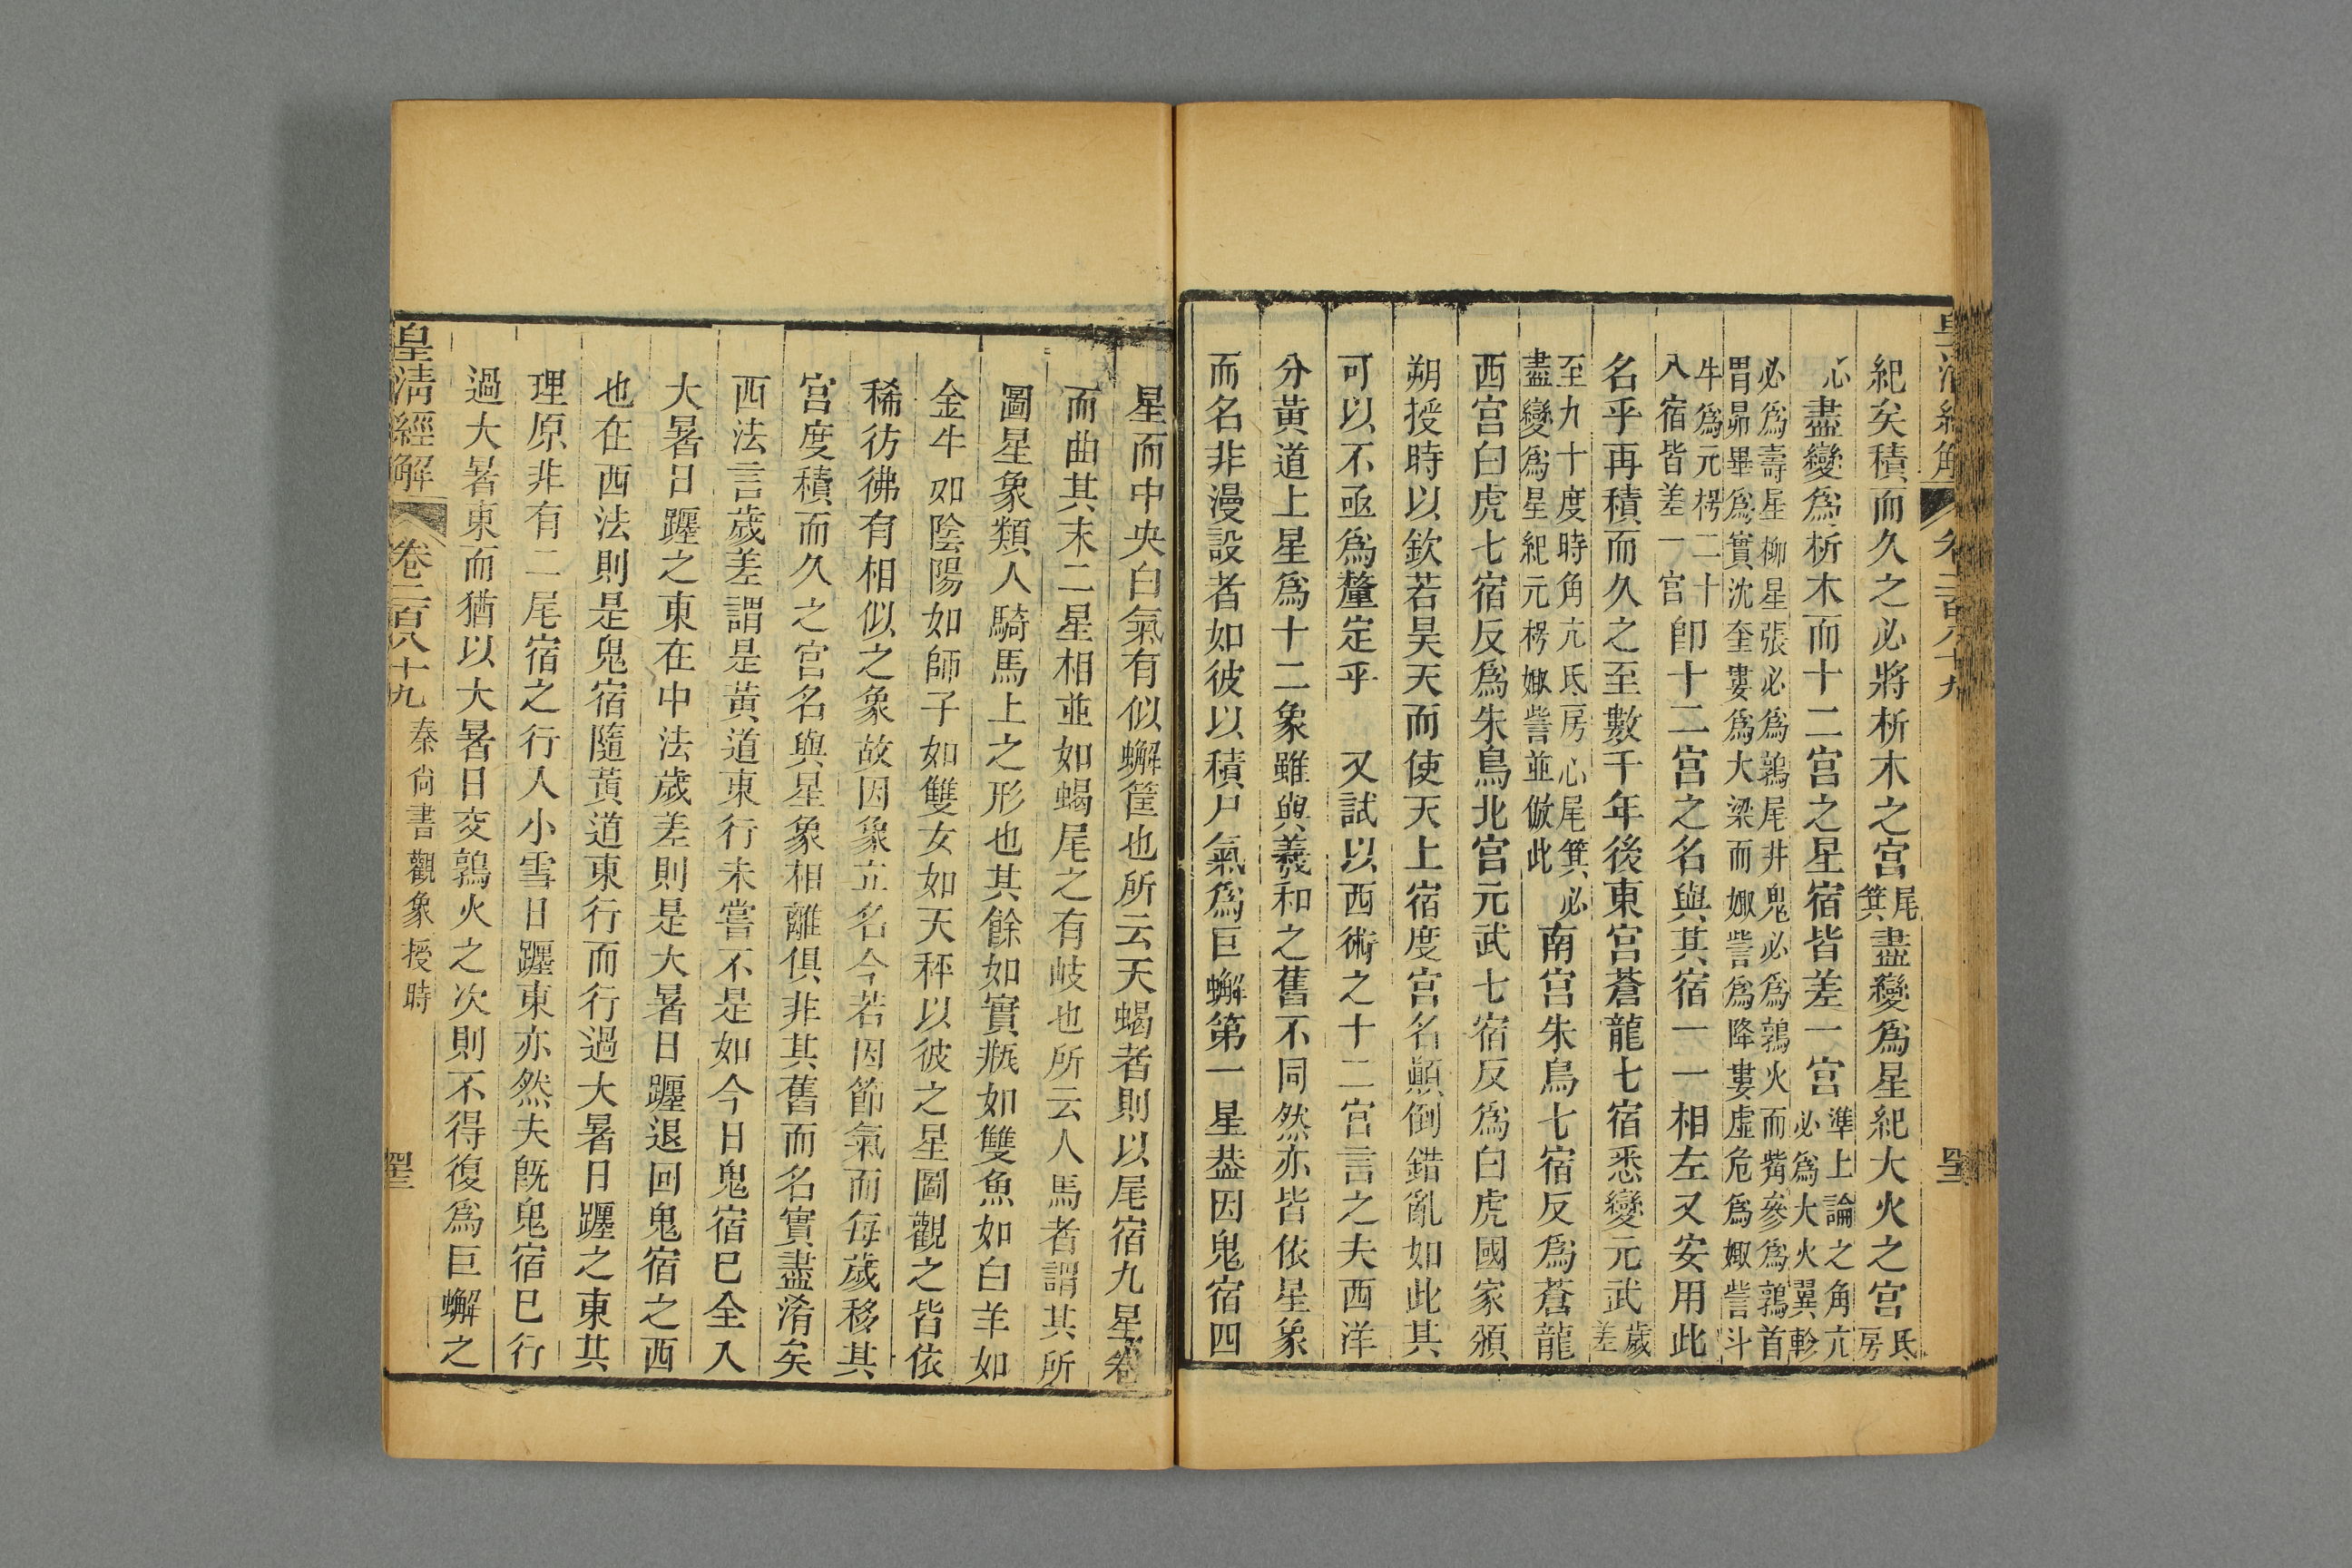 紀矣積而久之必將析木之宮尾箕盡變爲星紀大火之宮氐房
心盡變爲析木而十二宮之星宿皆差一宮準上論之角亢必爲大火翼軫
必爲壽星柳星張必爲鶉尾井鬼必爲鶉火而觜參爲鶉首
胃昴畢爲實沈奎婁爲大梁而娵訾爲降婁虛危爲娵訾斗
牛爲元枵二十八宿皆差一宮卽十二宮之名與其宿一一相左又安用此
名乎再積而久之至數千年後東宮蒼龍七宿悉變元武歲差
至九十度時角亢氐房心尾箕必盡變爲星紀元枵娵訾並倣此南宮朱鳥七宿反爲蒼龍
西宮白虎七宿反爲朱鳥北宮元武七宿反爲白虎國家頒
朔授時以欽若昊天而使天上宿度宮名顚倒錯亂如此其
可以不亟爲釐定乎 又試以西術之十二宮言之夫西洋
分黃道上星爲十二象雖與羲和之舊不同然亦皆依星象
而名非漫設者如彼以積尸氣爲巨蠏第一星葢因鬼宿四
星而中央白氣有似蠏筐也所云天蝎者則以尾宿九星卷
而曲其末二星相並如蝎尾之有岐也所云人馬者謂其所
圖星象類人騎馬上之形也其餘如寶瓶如雙魚如白羊如
金牛如陰陽如師子如雙女如天秤以彼之星圖觀之皆依
稀彷彿有相似之象故因象立名今若因節氣而每歲移其
宮度積而久之宮名與星象相離俱非其舊而名實盡淆矣
西法言歲差謂是黃道東行未嘗不是如今日鬼宿巳全入
大暑日躔之東在中法歲差則是大暑日躔退回鬼宿之西
也在西法則是鬼宿隨黃道東行而行過大暑日躔之東其
理原非有二尾宿之行入小雪日躔東亦然夫旣鬼宿巳行
過大暑東而猶以大暑日交鶉火之次則不得復爲巨蠏之
皇淸經解 卷二百八十九 秦尙書觀象授時